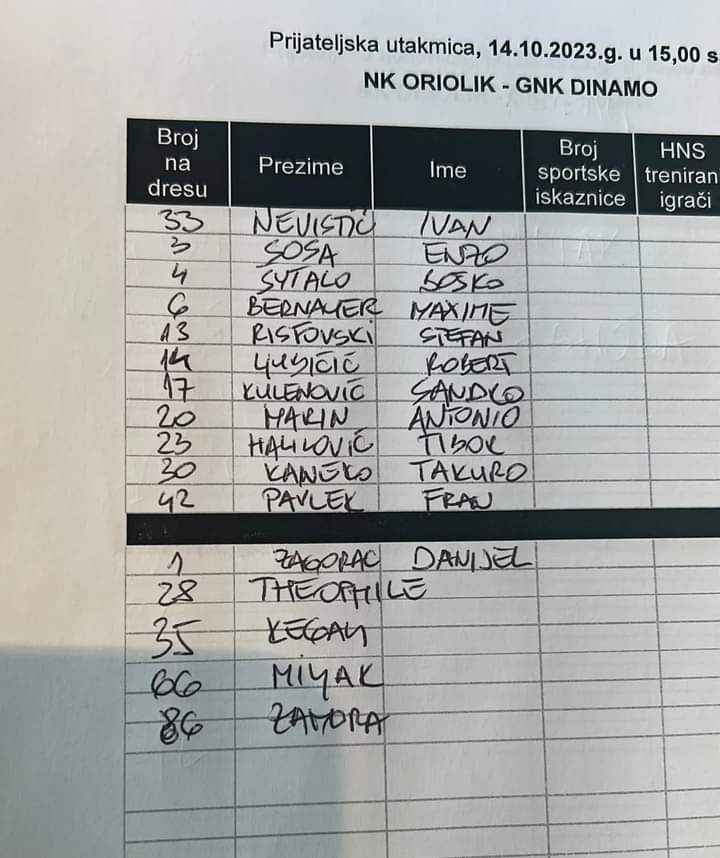 Prijateljska utakmica, 14.10.2023.g. u 15,00 s
NK ORIOLIK - GNK DINAMO
Broj na dresu Prezime Ime Broj sportske iskaznice HNS treniran igrači
33 NEVISTIĆ IVAN
3 SOSA ENZO
4 SYTALO BOSKO
6 BERNAUER MAXIME
13 RISTOVSKI STEFAN
14 LJUBIČIĆ ROBERT
17 KULENOVIĆ SANDRO
20 MARIN ANTONIO
23 HALILOVIĆ TIBOR
30 KANEKO TAKURO
42 PAVLEK FRAN
1 ZAGORAC DANIJEL
28 THEOPHILE
35
66 MIYAK
86